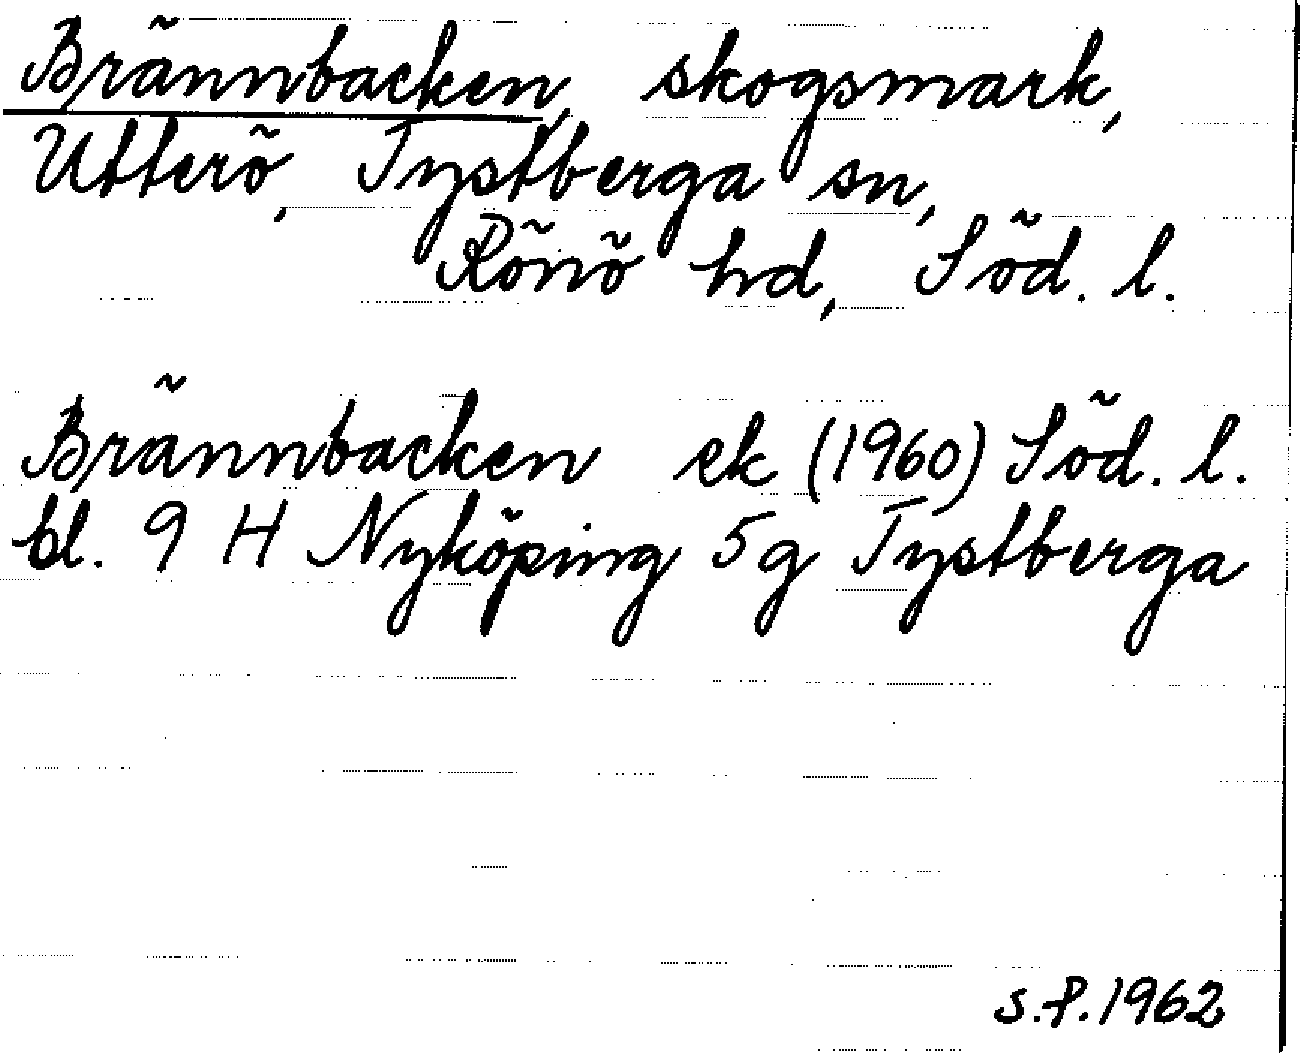 Brännbacken, skogsmark,
Utterö, Tystberga sn,
Rönö hd, Söd. l.
Brännbacken ek (1960) Söd. l.
bl. 9 H Nyköping 5g Tystberga
S.P. 1962